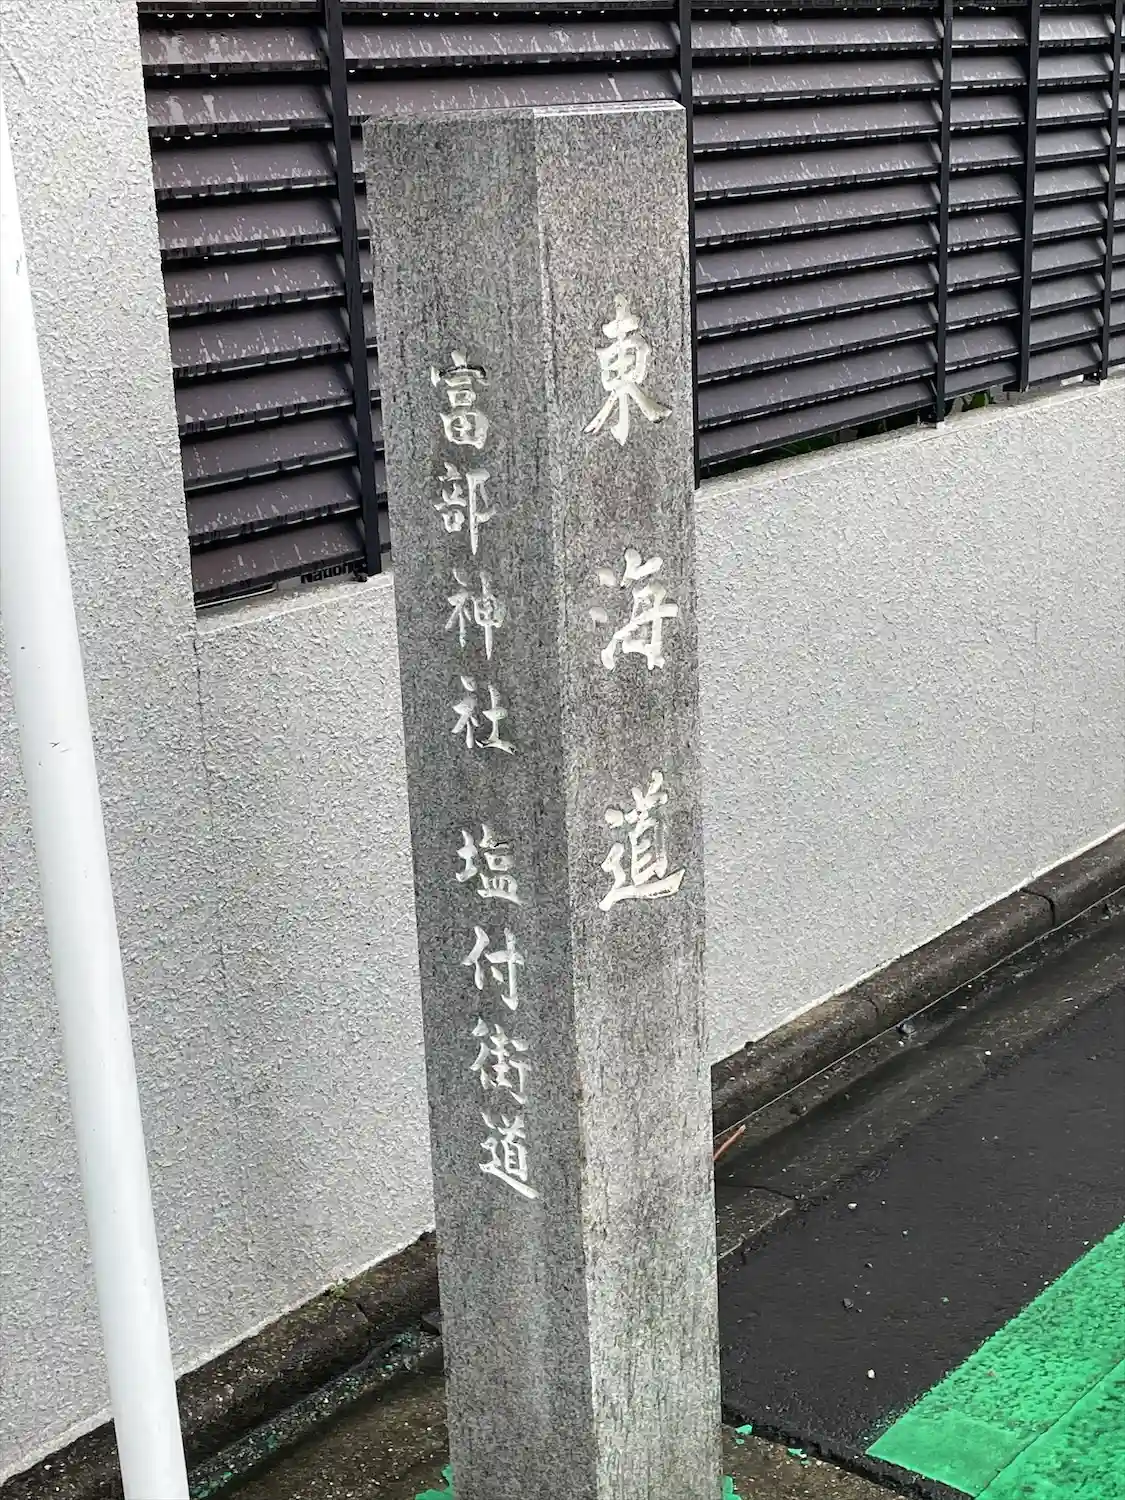 東海道
富部神社 塩付街道